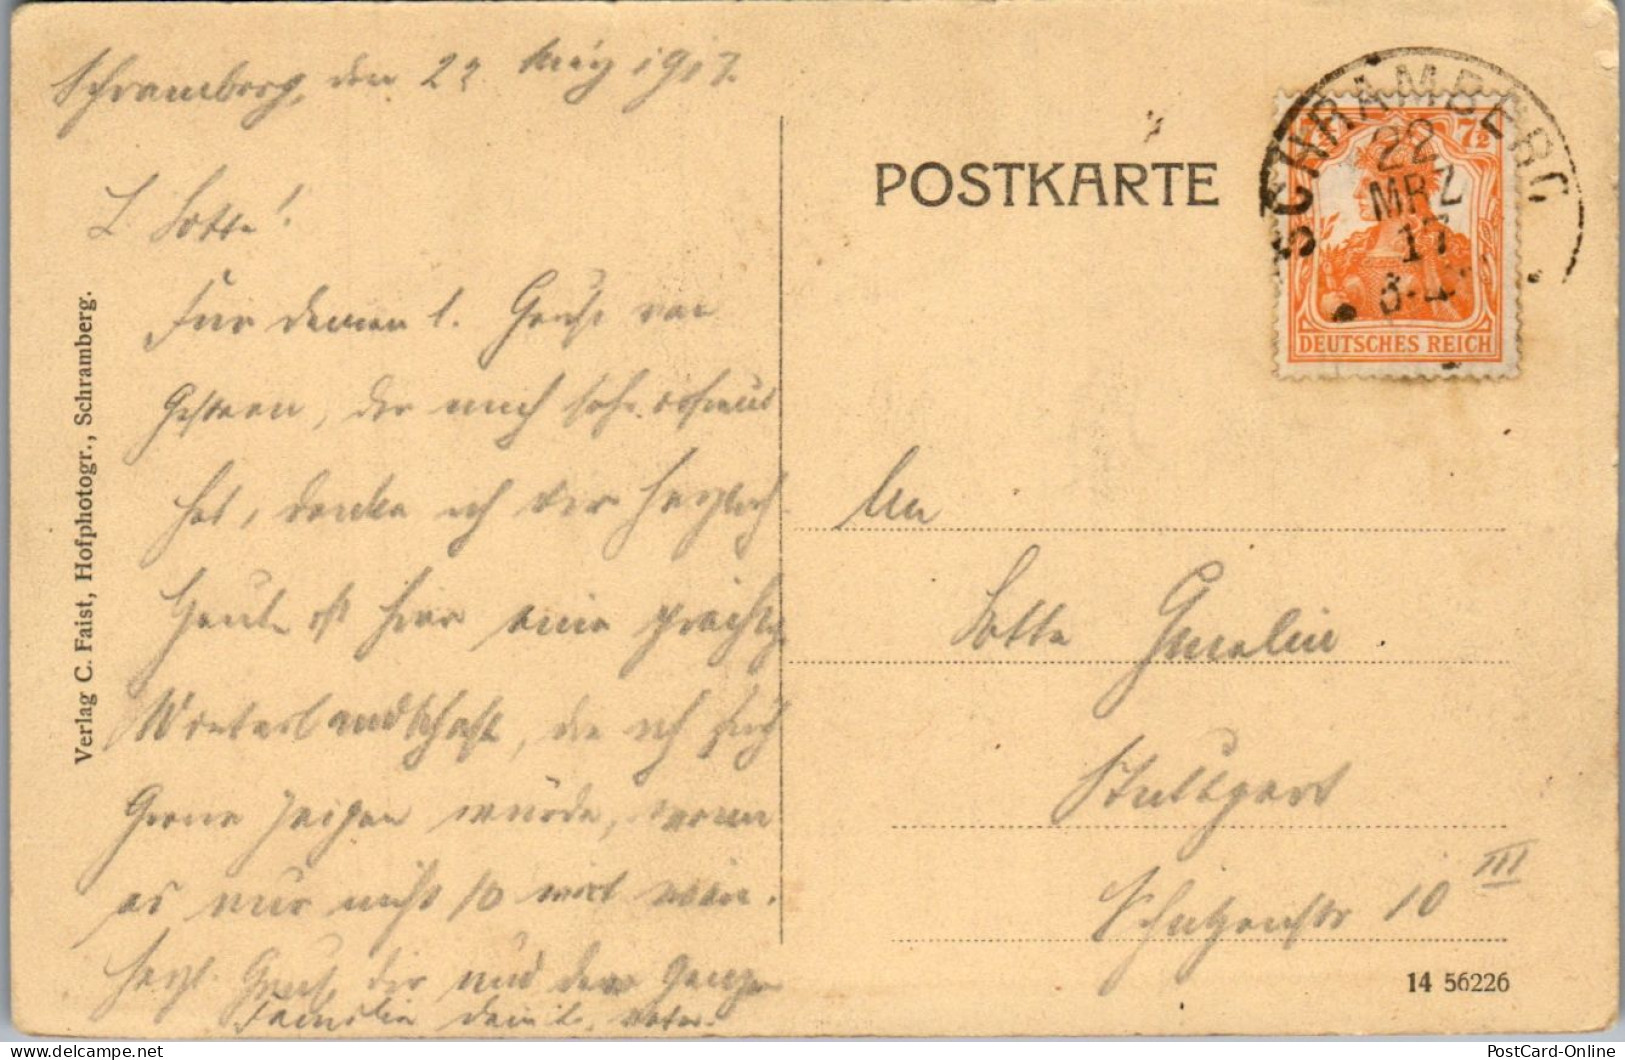 Schramberg, den 22. März 1917.
L. Lotte!
Für deinen l. Gruß von
Gestern, der mich sehr erfreut
hat, danke ich dir herzlich.
Heute ist hier eine prächtige
Winterlandschaft, die ich Euch
Gerne zeigen würde, wenn
es nur nicht so weit wäre.
Herzl. Gruß dir und der Ganzen
Familie dein l. Vater.
Verlag C. Faist, Hofphotogr., Schramberg.
POSTKARTE
SCHRAMBERG
22
MRZ
17
7½
DEUTSCHES REICH
An
Lotte Gmelin
Stuttgart
Schützenstr 10 III
14 56226
PostCard-Online